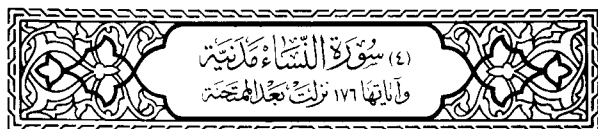 (٤) سُورَةُ النِّسَاءِ مَدَنِيَّة
وَآيَاتُهَا ١٧٦ نَزَلَتْ بَعْدَ المُمْتَحَنَة